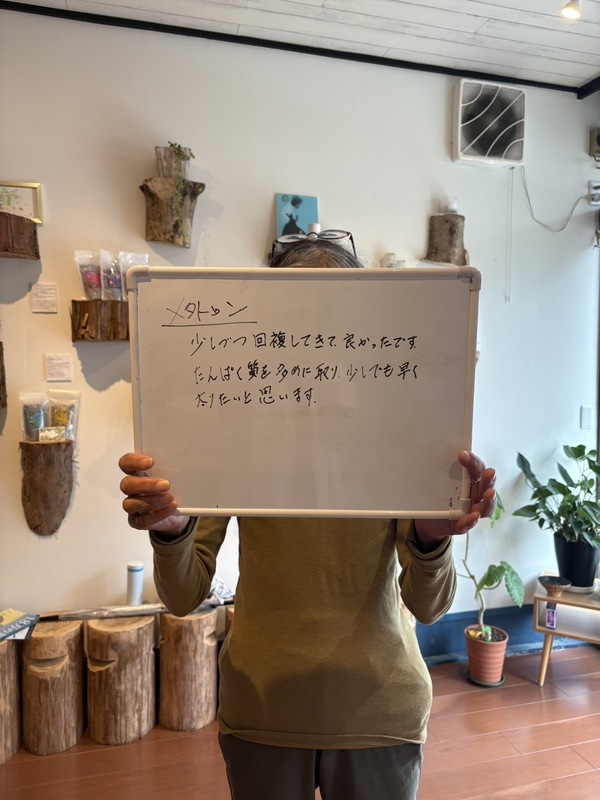 メタトロン
少しづつ回複してきて良かったです
たんぱく質を多めに取り、少しでも早く
太りたいと思います。